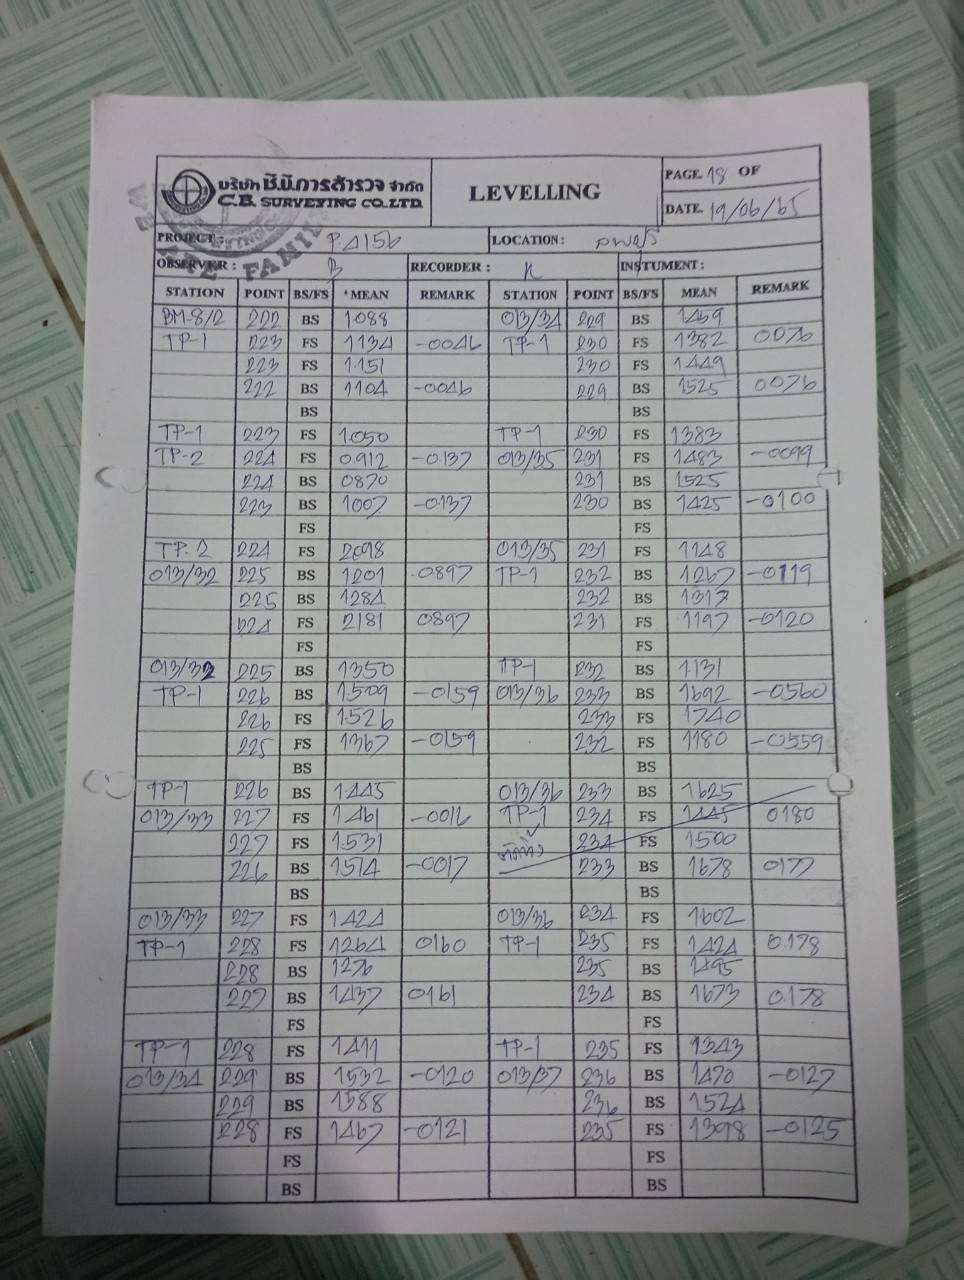 บริษัท ซี.บี.การสำรวจ จำกัด
C.B. SURVEYING CO.LTD.
LEVELLING
PAGE. 18 OF
DATE. 19/06/65
PROJECT: PA156 LOCATION: ลพบุรี
OBSERVER: B RECORDER: INSTUMENT:
STATION POINT BS/FS MEAN REMARK STATION POINT BS/FS MEAN REMARK
BM-8/2 222 BS 1088 013/34 229 BS 1459
TP-1 223 FS 1134 -0046 TP-1 230 FS 1382 0076
223 FS 1.151 230 FS 1449
222 BS 1104 -0046 229 BS 1525 0076
BS BS
TP-1 223 FS 1050 TP-1 230 FS 1383
TP-2 224 FS 0.912 -0137 013/35 231 FS 1483 -0099
224 BS 0870 231 BS 1525
223 BS 1007 -0137 230 BS 1425 -0100
FS FS
TP.2 224 FS 2098 013/35 231 FS 1148
013/32 225 BS 1201 0897 TP-1 232 BS 1267 -0119
225 BS 1284 232 BS 1317
224 FS 2181 0897 231 FS 1197 -0120
FS FS
013/32 225 BS 1350 TP-1 232 BS 1131
TP-1 226 BS 1509 -0159 013/36 233 BS 1692 -0560
226 FS 1.526 233 FS 1740
225 FS 1367 -0159 232 FS 1180 -0559
BS BS
TP-1 226 BS 1445 013/36 233 BS 1625
013/33 227 FS 1461 -0016 TP-1 234 FS 1445 0180
227 FS 1531 ตัดทิ้ง 234 FS 1500
226 BS 1514 -0017 233 BS 1678 0177
BS BS
013/33 227 FS 1424 013/36 234 FS 1602
TP-1 228 FS 1264 0160 TP-1 235 FS 1424 0.178
228 BS 1276 235 BS 1495
227 BS 1437 0161 234 BS 1673 0.178
FS FS
TP-1 228 FS 1411 TP-1 235 FS 1343
013/34 229 BS 1532 -0120 013/37 236 BS 1470 -0127
229 BS 1588 236 BS 1524
228 FS 1467 -0121 235 FS 1398 -0125
FS FS
BS BS